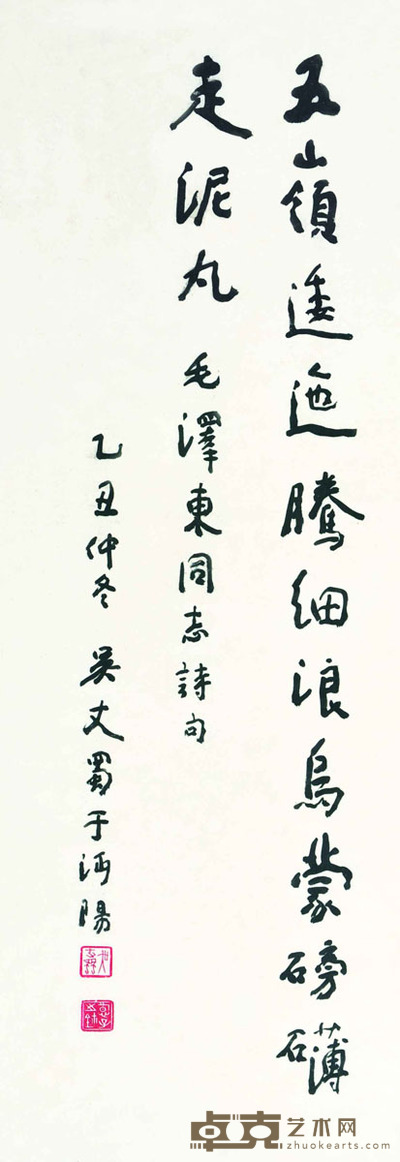 五嶺逶迤騰細浪烏蒙磅礴
走泥丸 毛澤東同志詩句
乙丑仲冬 吳丈蜀于沔陽
卓克艺术网
zhuokearts.com